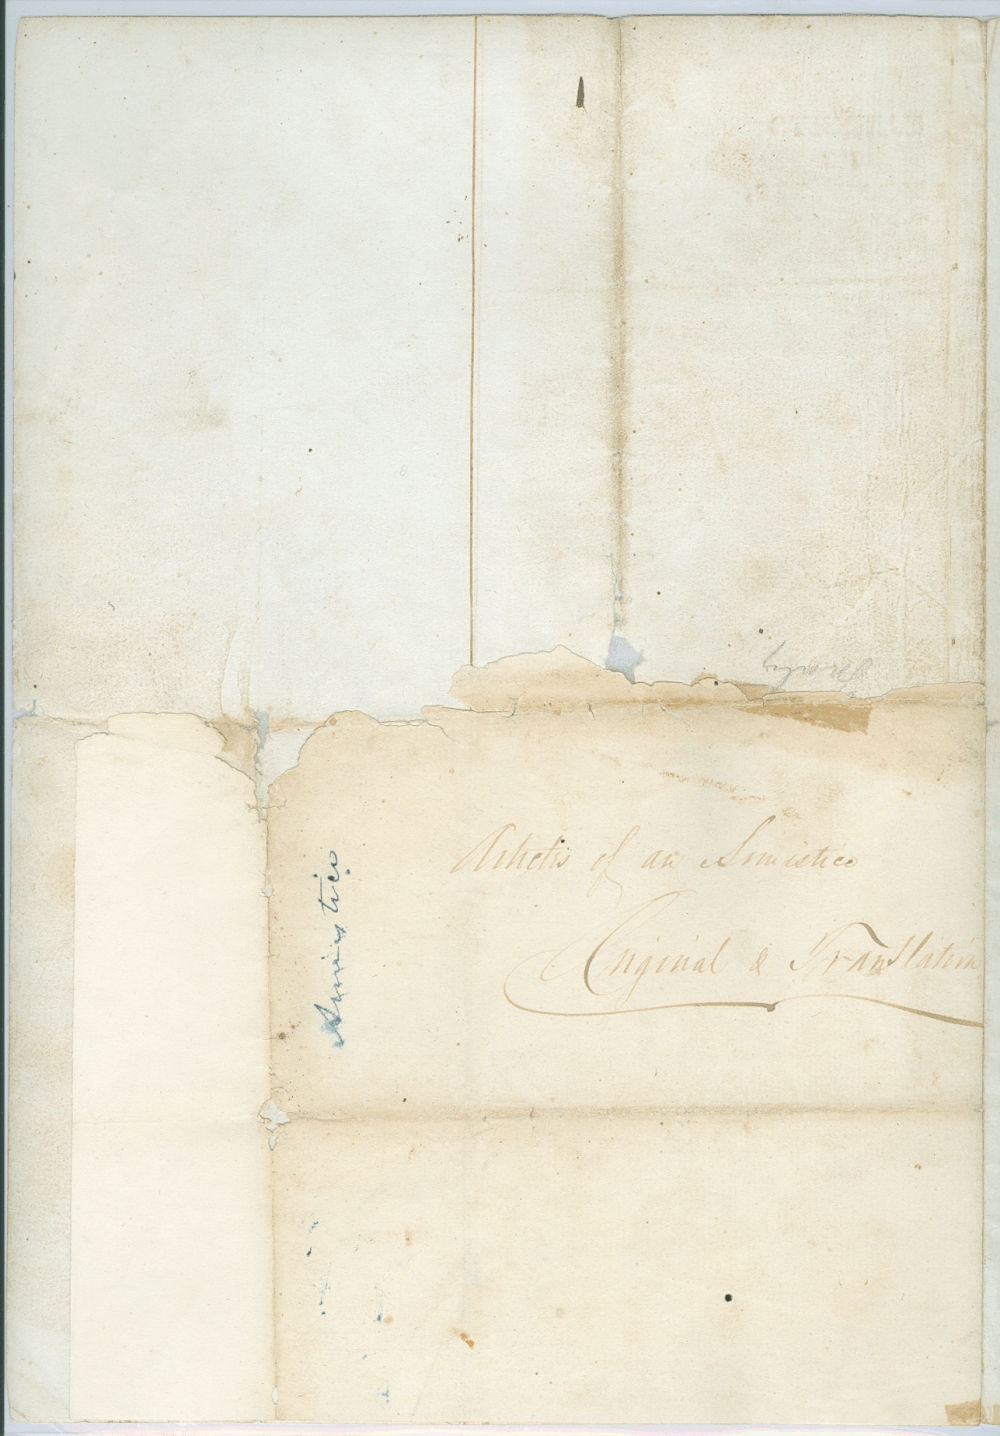 Articles of an Armistice
Original & Translation
Armistice